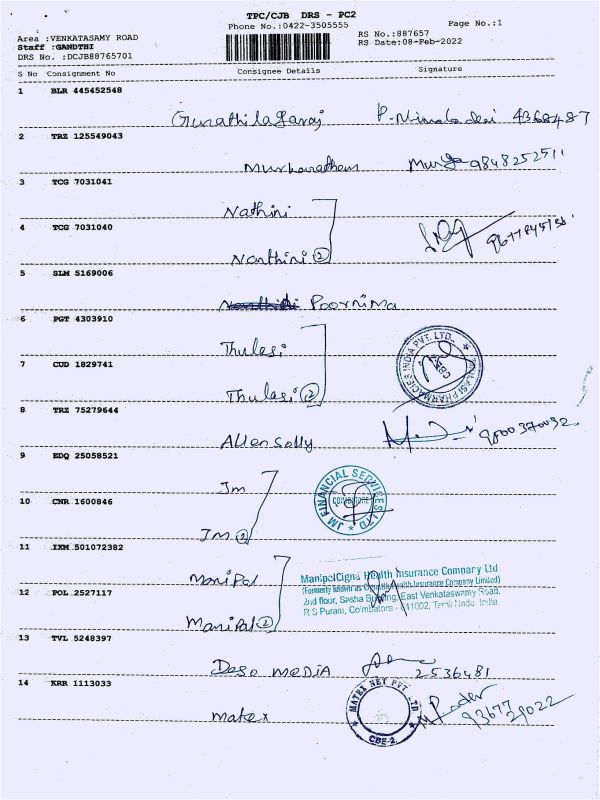 TPC/CJB DRS - PC2
Phone No.:0422-3505555
Page No.:1
Area :VENKATASAMY ROAD
Staff :GANDTHI
DRS No. :DCJB88765701
RS No.:887657
RS Date:08-Feb-2022
S No Consignment No Consignee Details Signature
1 BLR 445452548
4368487
2 TRZ 125549043
9848252511
3 TCG 7031041
Nathini
4 TCG 7031040
Nanthini 2
5 SLM 5169006
Poornima
6 PGT 4303910
Thulasi
7 CUD 1829741
Thulasi 2
8 TRZ 75279644
Allen Solly
9 EDQ 25058521
Jm
JM FINANCIAL SERVICES LTD
COIMBATORE
10 CNR 1600846
Jm 2
11 IXM 501072382
Manipal
ManipalCigna Health Insurance Company Ltd
(Formerly known as CignaTTK Health Insurance Company Limited)
2nd floor, Sesha Building, East Venkataswamy Road,
R S Puram, Coimbatore - 641002, Tamil Nadu, India
12 POL 2527117
Manipal 2
13 TVL 5248397
MEDIA 2536481
14 KRR 1113033
Matex
MATEX NET PVT LTD
CBE-2.
93677
29022